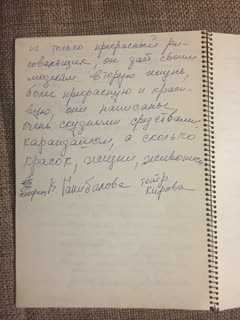 не только прекрасный ри-
совальщик, он дает своим
моделям вторую жизнь,
более прекрасную и краси-
вую, они написаны
очень скудными средствами
карандашом, а сколько
красок, жизни, живописи
В. Ганибалова театр
Кирова